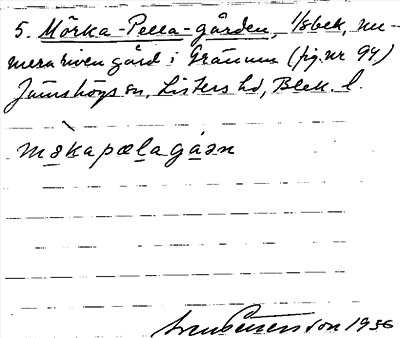 5. Mörka-Pella-gården, 1/8 bek, nu-
mera riven gård i Gränum (fig. nr 94)
Jämshögs sn, Listers hd, Blek. l.
møkapælagáən
Sven Benson 1936